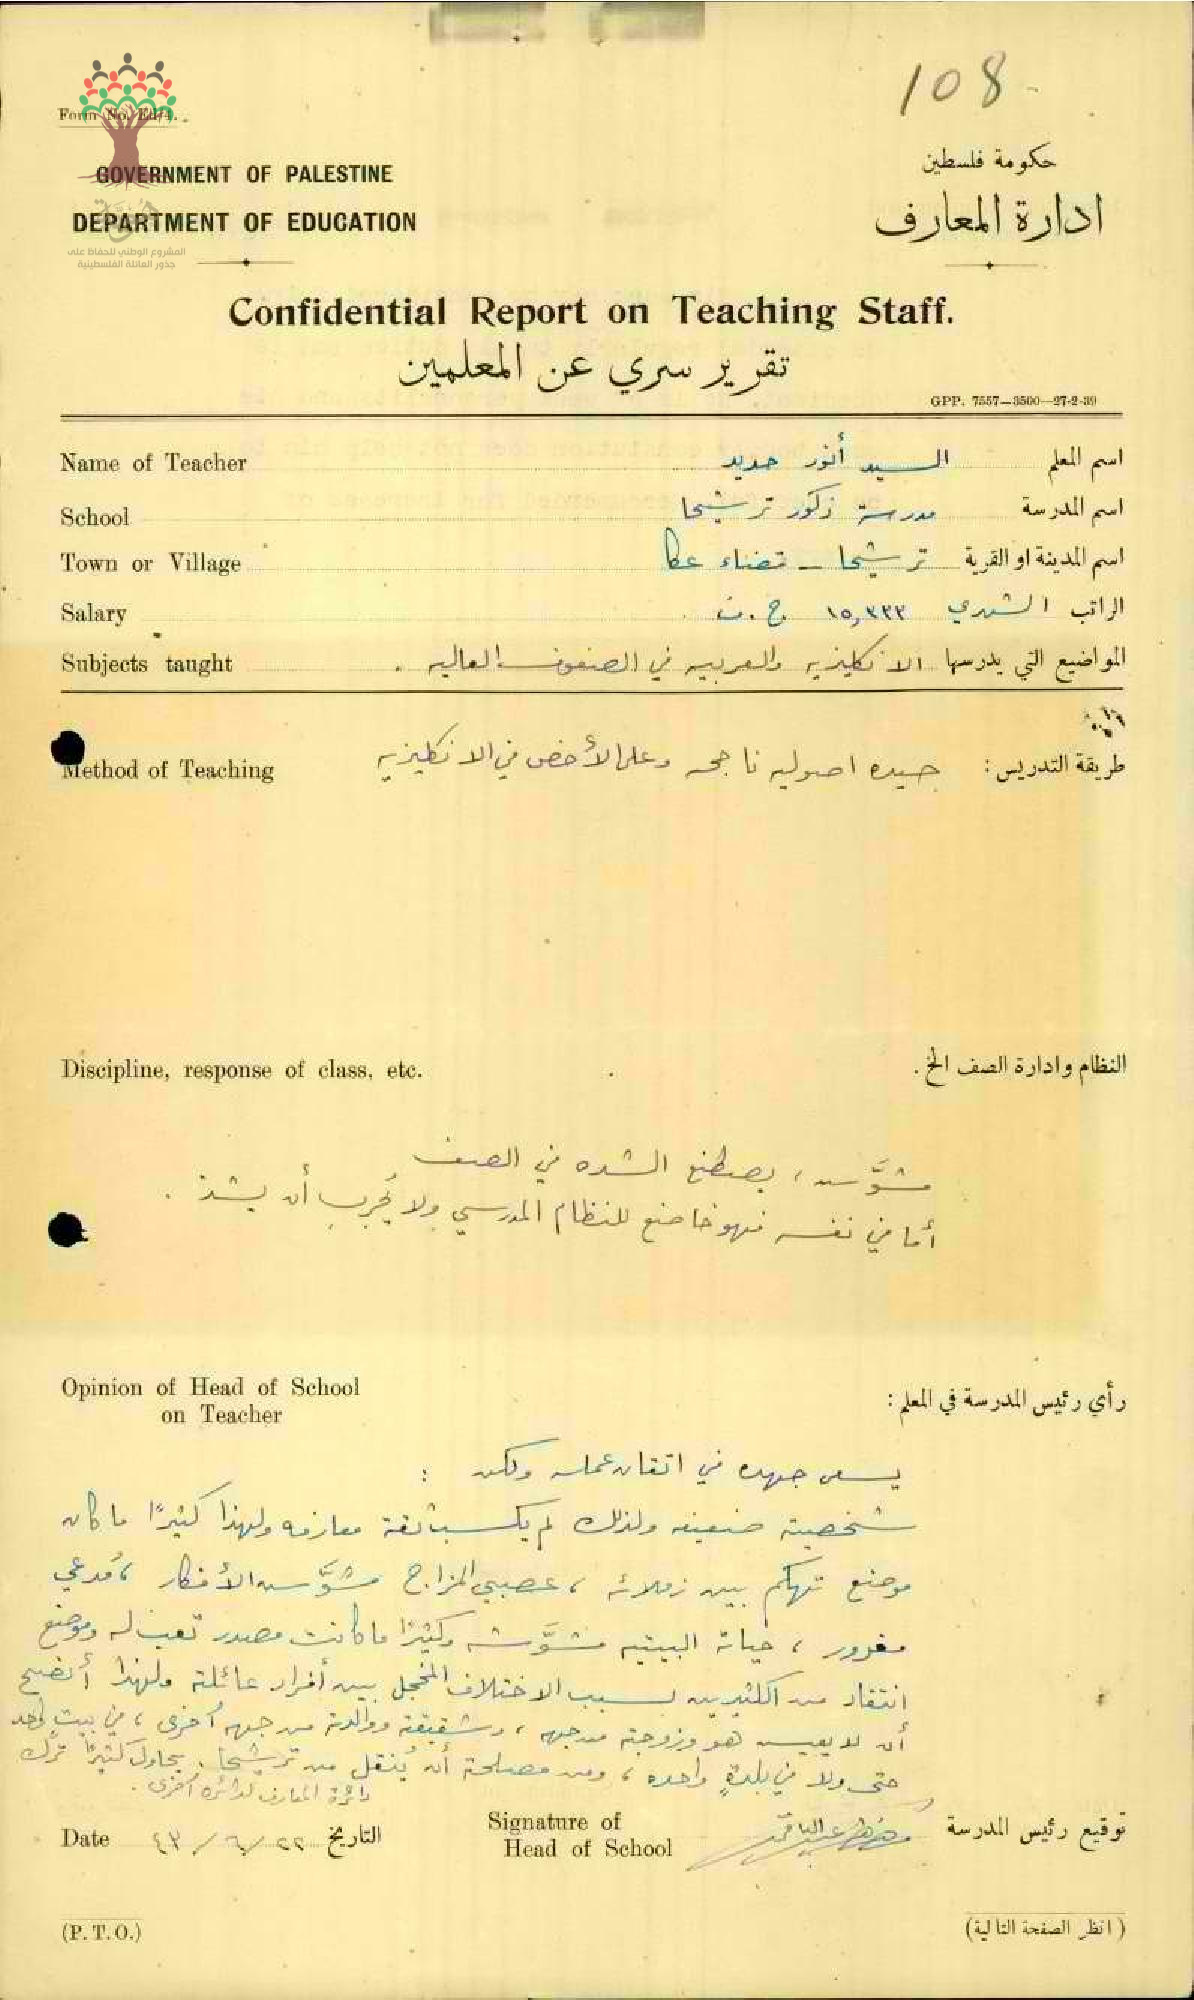 108
Form No. Ed/4.
GOVERNMENT OF PALESTINE
حكومة فلسطين
DEPARTMENT OF EDUCATION
ادارة المعارف
هُوِيَّة
المشروع الوطني للحفاظ على
جذور العائلة الفلسطينية
Confidential Report on Teaching Staff.
تقرير سري عن المعلمين
GPP. 7557—3500—27-2-39
Name of Teacher السيد أنور حديد اسم المعلم
School مدرسة ذكور ترشيحا اسم المدرسة
Town or Village ترشيحا - قضاء عكا اسم المدينة او القرية
Salary ١٥,٣٣٣ ج.ف الراتب الشهري
Subjects taught الانكليزيه والعربيه في الصفوف العاليه . المواضيع التي يدرسها
Method of Teaching جيده اصوليه ناجحه وعلى الأخص في الانكليزيه طريقة التدريس :
Discipline, response of class, etc. النظام وادارة الصف الخ .
مشوَّسه ، يصطنع الشده في الصف
أما في نفسه فهو خاضع للنظام المدرسي ولا يُجرب أن يشذ .
Opinion of Head of School
on Teacher
رأي رئيس المدرسة في المعلم :
يسعى جهده في اتقان عمله ولكن :
شخصيته ضعيفه ولذلك لم يكسب ثقة معارفه ولهذا كثيرًا ما كان
موضع تهكم بين زملائه ، عصبي المزاج مشوَّس الأفكار ، مُدعي
مغرور ، حياته البيتيه مشوَّشه وكثيرًا ما كانت مصدر تعب له وموضع
انتقاد من الكثيرين بسبب الاختلاف المخجل بين أفراد عائلته ولهذا أنصح
أن لا يعيش هو وزوجته من جهه ، وشقيقته ووالدته من جهه أخرى ، في بيت واحد
حتى ولا في بلدةٍ واحده ، ومن مصلحته أن يُنقل من ترشيحا . يحاول كثيرًا ترك
دائرة المعارف لدائره أخرى .
Date ٢٢/٦/٤٣ التاريخ
Signature of
Head of School
توقيع رئيس المدرسة
(P. T. O.)
( انظر الصفحة التالية )